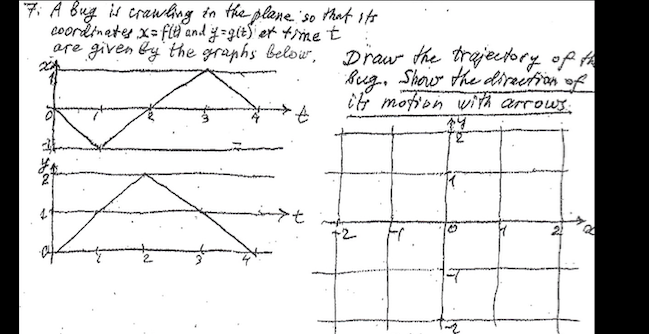 7. A Bug is crawling in the plane so that its
coordinates x=f(t) and y=g(t) at time t
are given by the graphs below.
Draw the trajectory of th
Bug. Show the direction of
its motion with arrows.
x
1
0 1 2 3 4 t
-1
y
2
1 t
0 1 2 3 4
y
2
1
-2 -1 0 1 2 x
-1
-2